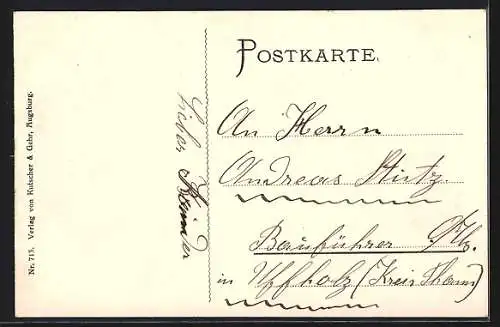 POSTKARTE.
An Herrn
Andreas Stutz
Bauführer
in Uffholz (Kreis Thann)
Nr. 715. Verlag von Kutscher & Gehr, Augsburg.